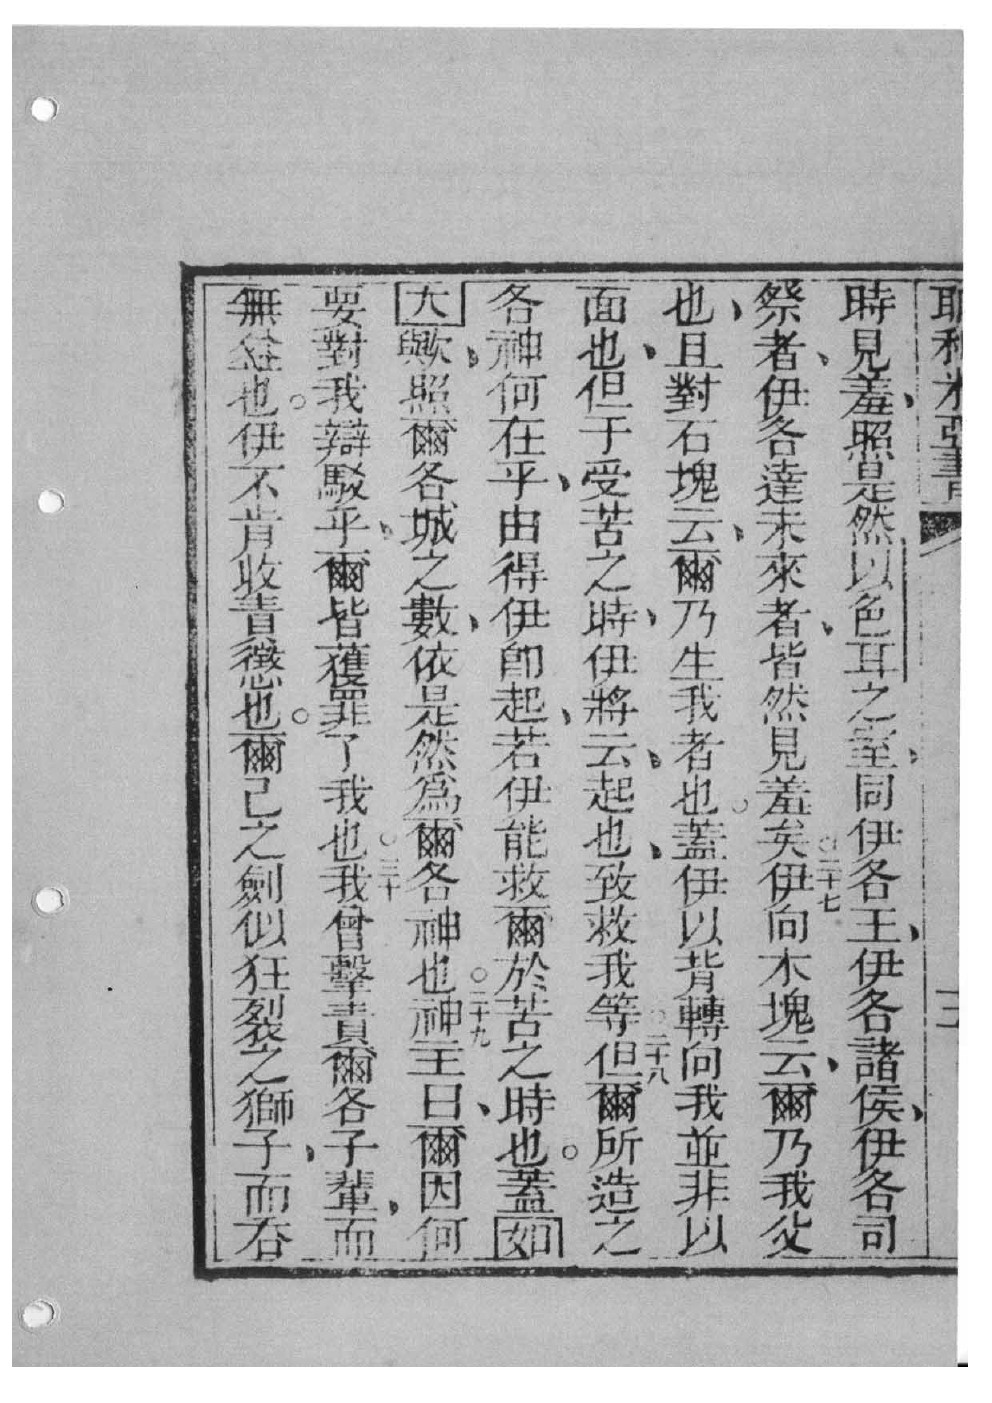 耶利米亞書 三
時見羞、照是然以色耳之室、同伊各王、伊各諸侯、伊各司
祭者、伊各達未來者、皆然見羞矣。二十七伊向木塊云、爾乃我父
也、且對石塊云、爾乃生我者也。蓋伊以背轉向我並非以
面也、但于受苦之時、伊將云、起也、致救我等。二十八但爾所造之
各神何在乎、由得伊卽起、若伊能救爾於苦之時也。蓋如
大歟、照爾各城之數、依是然爲爾各神也。二十九神主曰、爾因何
要對我辯駁乎、爾皆獲罪了我也。三十我曾擊責爾各子輩、而
無益也。伊不肯收責懲也。爾己之劍似狂裂之獅子、而吞